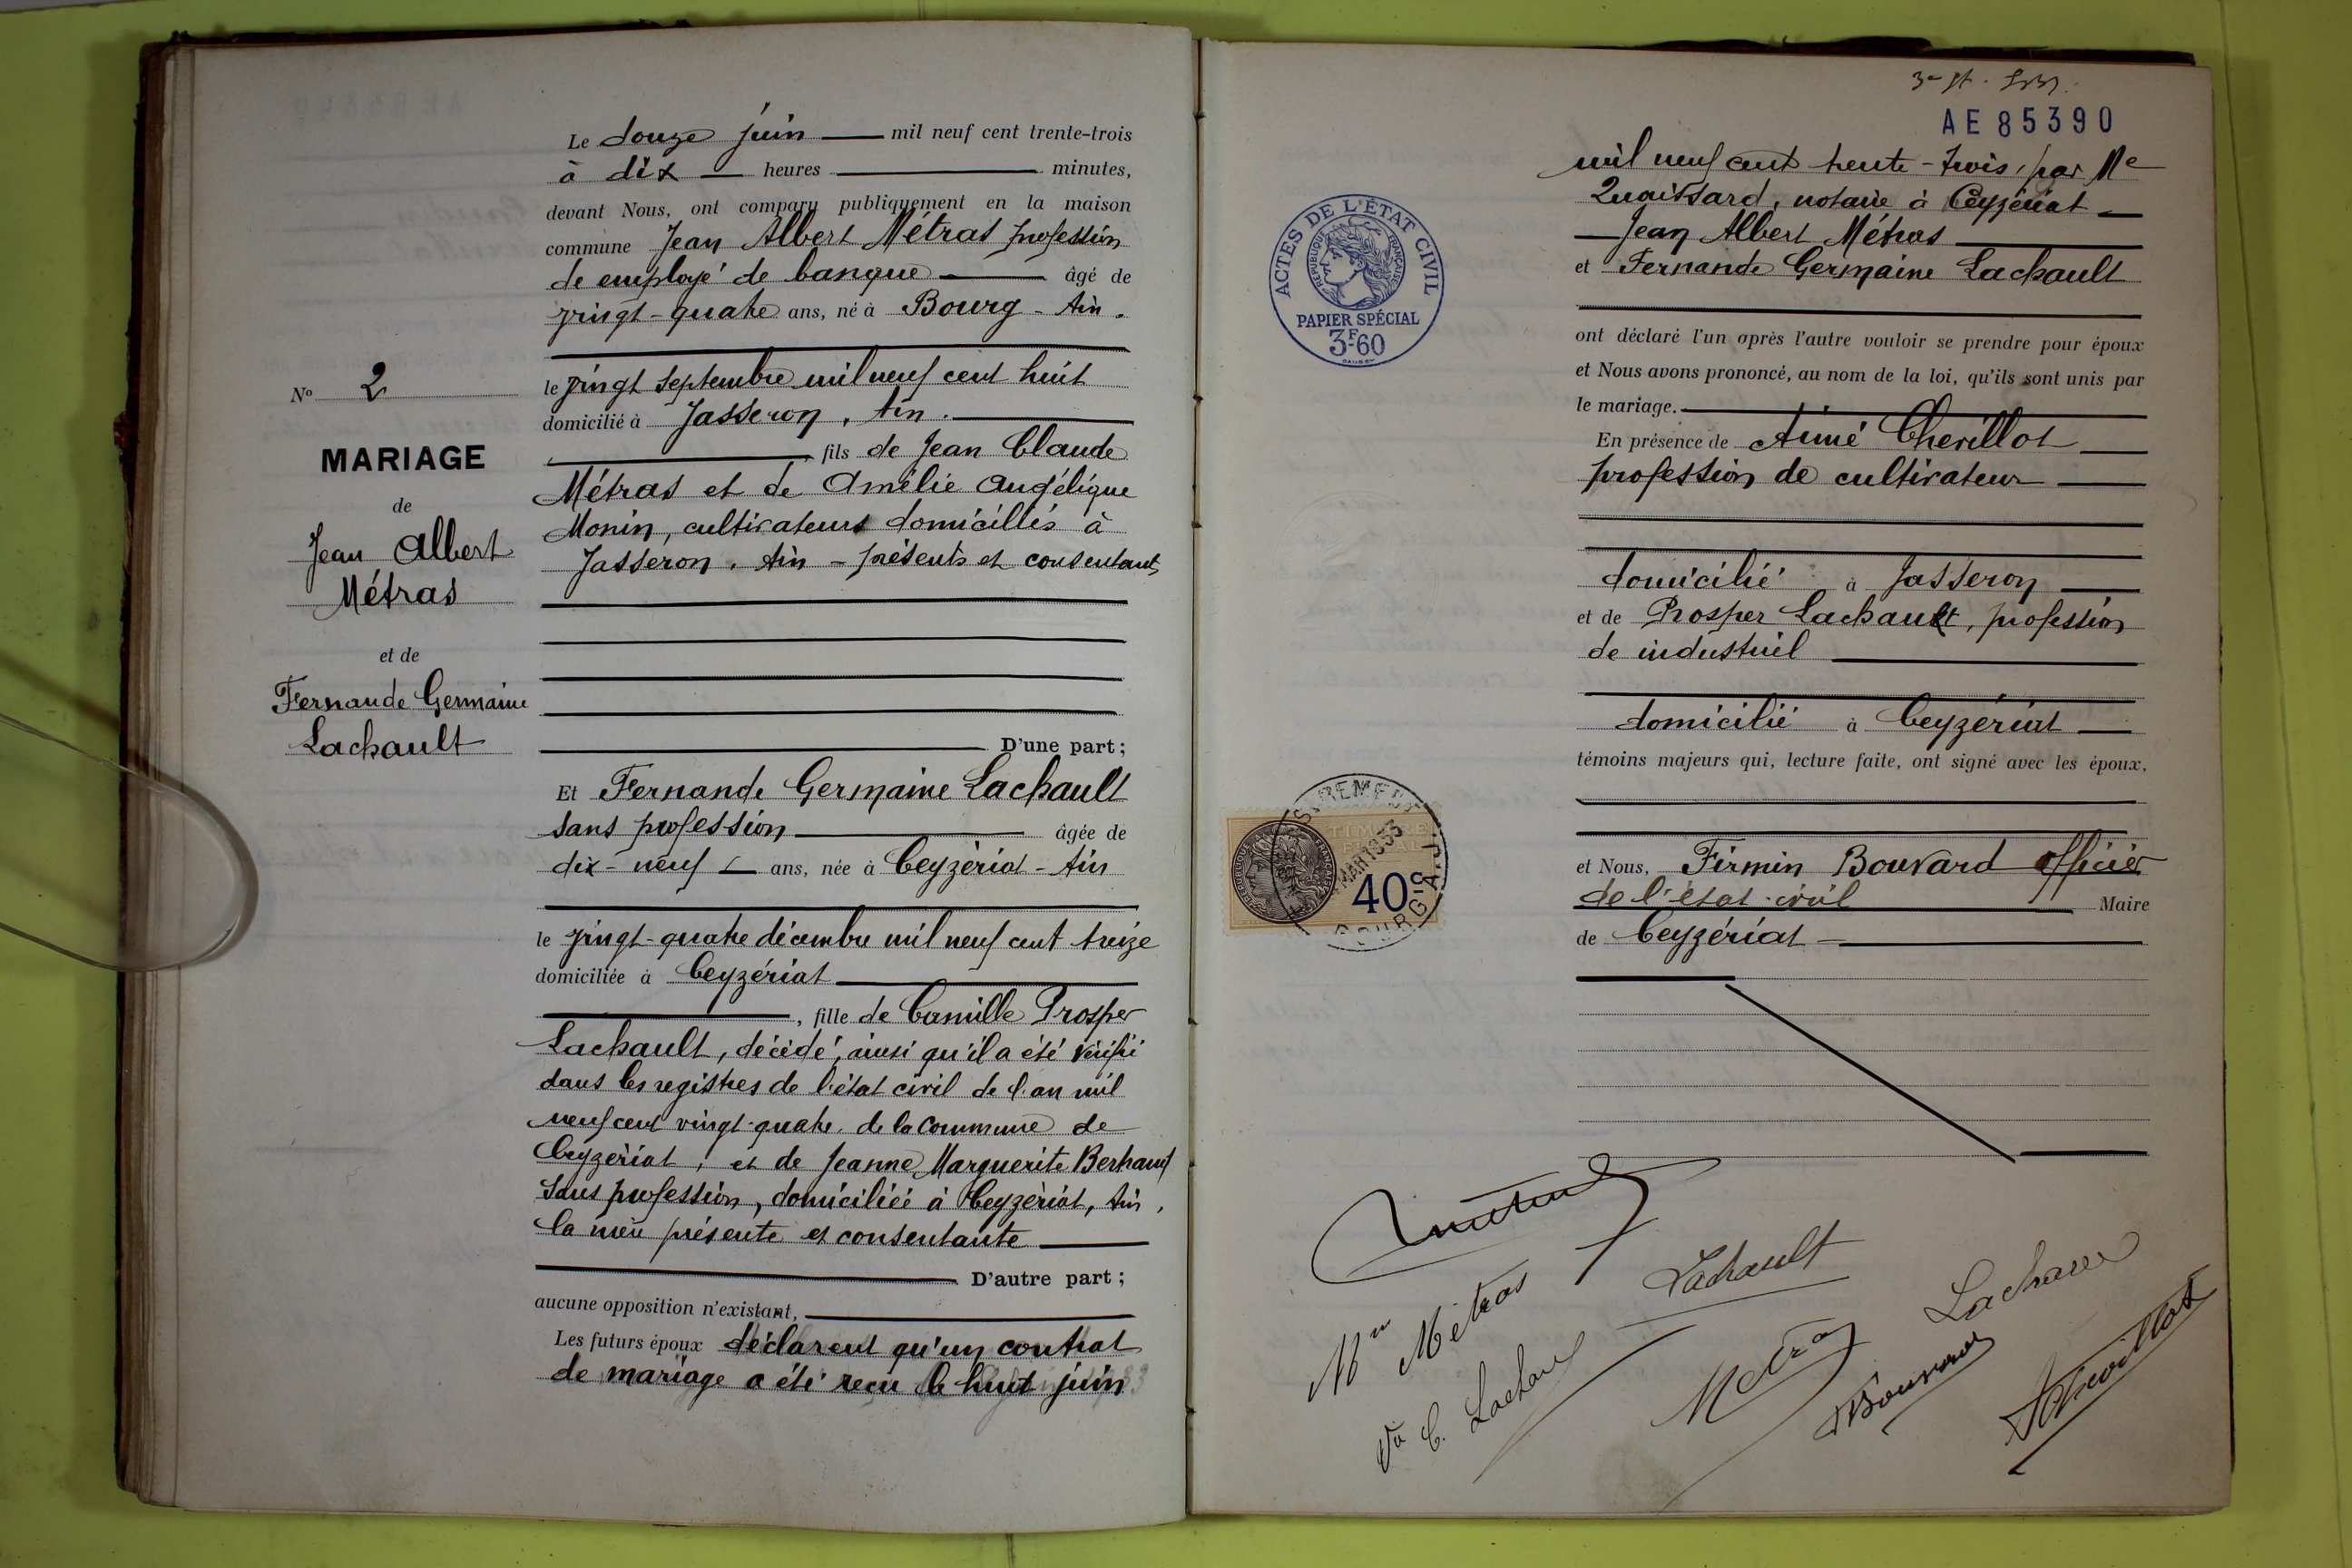 Le douze juin mil neuf cent trente-trois
à dix heures minutes,
devant Nous, ont comparu publiquement en la maison
commune Jean Albert Métras profession
de employé de banque âgé de
vingt-quatre ans, né à Bourg - Ain.
le vingt septembre mil neuf cent huit
domicilié à Jasseron, Ain.
fils de Jean Claude
Métras et de Amélie Angélique
Monin, cultivateurs domiciliés à
Jasseron, Ain - présents et consentants
D'une part;
Et Fernande Germaine Lachault
sans profession âgée de
dix-neuf ans, née à Ceyzériat - Ain
le vingt-quatre décembre mil neuf cent treize
domiciliée à Ceyzériat
, fille de Camille Prosper
Lachault, décédé, ainsi qu'il a été vérifié
dans les registres de l'état civil de l'an mil
neuf cent vingt-quatre, de la commune de
Ceyzériat, et de Jeanne Marguerite Bertrand
sans profession, domiciliée à Ceyzériat, Ain,
la mère présente et consentante
D'autre part;
aucune opposition n'existant,
Les futurs époux déclarent qu'un contrat
de mariage a été reçu le huit juin
No 2
MARIAGE
de
Jean Albert
Métras
et de
Fernande Germaine
Lachault
AE 85390
mil neuf cent trente-trois, par Me
Quaissard, notaire à Ceyzériat
Jean Albert Métras
et Fernande Germaine Lachault
ont déclaré l'un après l'autre vouloir se prendre pour époux
et Nous avons prononcé, au nom de la loi, qu'ils sont unis par
le mariage.
En présence de Aimé Chevillot
profession de cultivateur
domicilié à Jasseron
et de Prosper Lachault, profession
de industriel
domicilié à Ceyzériat
témoins majeurs qui, lecture faite, ont signé avec les époux,
et Nous, Firmin Bouvard officier
de l'état-civil Maire
de Ceyzériat
ACTES DE L'ÉTAT CIVIL
RÉPUBLIQUE FRANÇAISE
PAPIER SPÉCIAL
3F60
TIMBRE
FISCAL
MAR 1933
40c
BOURG
Lachault
Métras
Vve C. Lachault
Métras
Bouvard
Chevillot